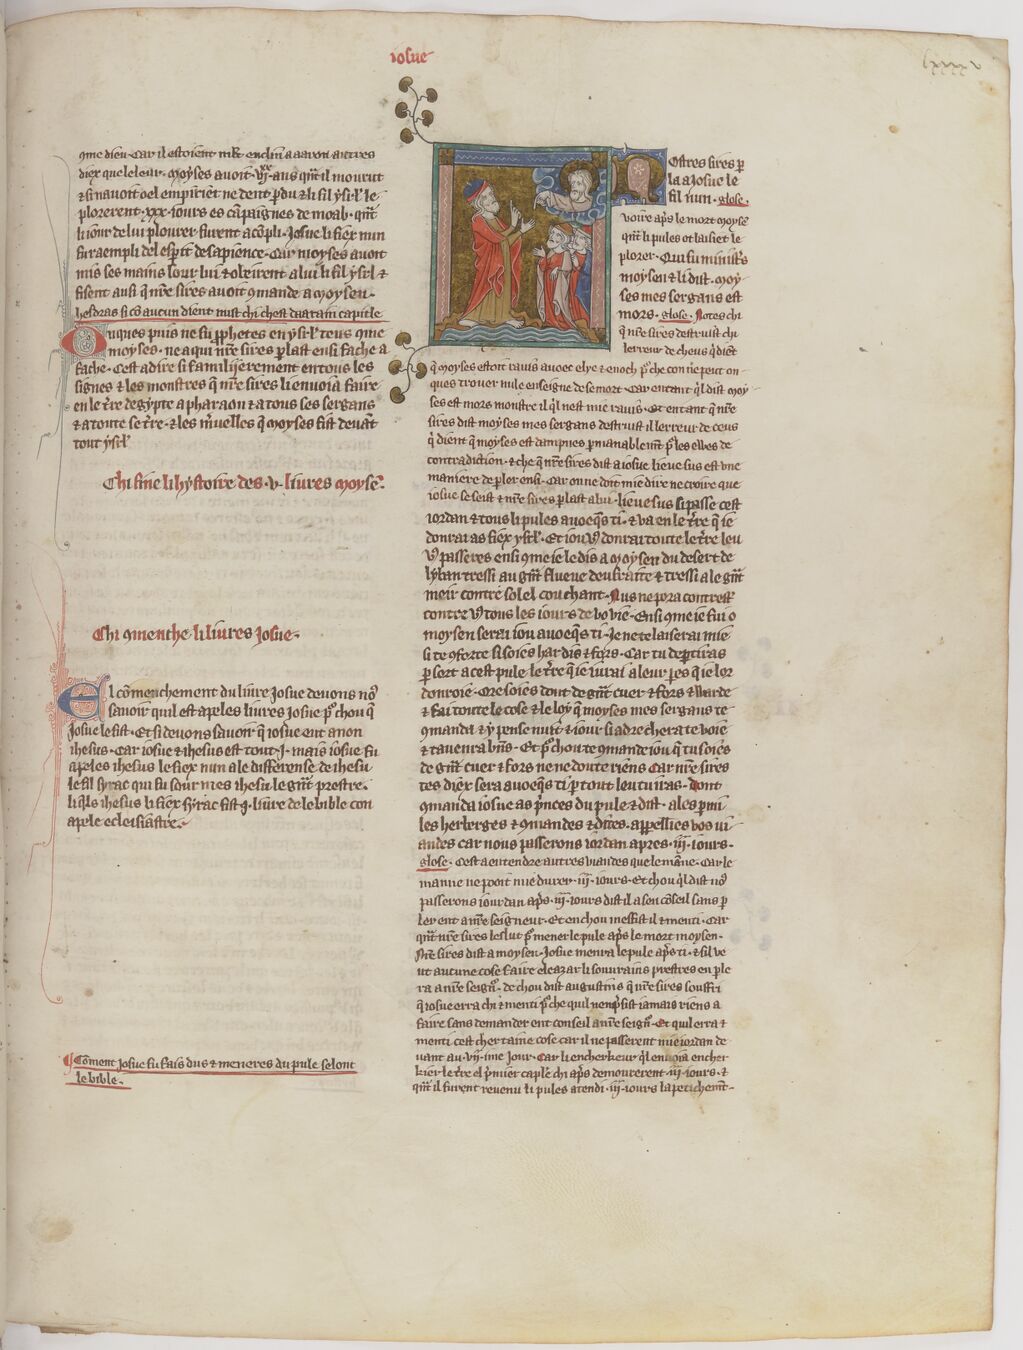 iosue
lxxxxv
que dieu. Car il estoient mlt enclin a aaourer autres
diex que le leur. Moyses auoit .vi.xx. ans qnt il mourut
& si nauoit oel empiriet ne dent pdu & li fil ysrl le
plorerent .xxx. iours es cãpaignes de moab. qnt
li iour de lui plourer furent acõpli. Josue li fiex nun
fu raempli del esperit de sapience. Car moyses auoit
mis ses mains sour lui & obeirent a lui li fil ysrl &
fisent ausi q nre sires auoit 9mande a Moysen.
hesdras si cõ aucun dient mist chi chest daarain capitle
Onques puis ne fu pphetes en ysrl teus que
moyses. ne a qui nre sires plast ensi fache a
fache. Cest a dire si familijerement en tous les
signes & les monstres q nre sires li enuoia faire
en le tre degypte a pharaon & a tous ses sergans
& a toute se tre. & les mruelles q Moyses fist deuãt
tout ysrl
Chi fine li hystoire des .v. liures Moyse.
Chi 9menche li liures Josue.
El cõmenchement du liure Josue deuons no9
sauoir quil est apeles liures Josue p chou q
Josue le fist. Et si deuons sauoir q iosue eut a non
ihesus. Car iosue & ihesus est tout .j. mais iosue fu
apeles ihesus le fiex nun a le differense de ihesu
le fil syrac qui fu sour mes ihesu le gnt prestre.
li qls ihesus li fiex syrac fist .j. liure de le bible con
apele ecclesiastre.
Cõment Josue fu fais dus & meneres du pule selonc
le bible.
Nostres sires p
la a Josue le
fil nun. glose.
voire aps le mort moyse
qnt li pules ot laisiet le
plorer. Qui fu ministres
moysen & li dist. Moy-
ses mes sergans est
mors. glose. Notes chi
q nre sires destruist chi
lerreur de cheus q dient
q moyses estoit rauis auoec elye & enoch p che con ne peut on-
ques trouer nule enseigne de se mort. Car en tant ql dist moy-
ses est mors monstre il ql nest mie rauis. Et en tant q nre
sires dist moyses mes sergans destruist il lerreur de ceus
q dient q moyses est dampnes pmanablemt p les ewes de
contradiction. & che q nre sires dist a iosue lieue sus est vne
maniere de pler ensi. Car on ne doit mie dire ne croire que
iosue se seist & nre sires plast a lui. lieue sus si passe cest
iordan & tous li pules auoeqs ti. & va en le tre q ie
donrai as fiex ysrl. Et iou v9 donrai toute le tre leu
v9 passeres ensi 9me ie le dis a Moysen du desert de
lyban tressi au gnt flueue de eufraite & tressi a le gnt
meir contre solel couchant. Nus ne pora contrest
contre v9 tous les iours de vo vie. Ensi 9me ie fui o
moysen serai iou auoeqs ti. Je ne te laiserai mie
si te 9forte si soies hardis & fors. Car tu deptiras
p sort a cest pule le tre q ie iurai a leur pes q ie lor
donroie. Ore soies dont de gnt cuer & fors & warde
& fai toute le cose & le loy q moyses mes sergans te
9manda & y pense nuit & iour si adrechera te voie
& tauenra bns. Et p chou te 9mande iou q tu soies
de gnt cuer & fors ne ne doute riens Car nre sires
tes diex sera auoeqs ti p tout leu tu iras. Dont
9manda iosue as pnces du pule & dist. ales pmi
les herberges & 9mandes & dites. appellies vos vi-
andes car nous passerons iordan apres .iij. iours.
glose. Cest a entendre autres viandes que le mãne. Car le
manne ne pooit mie durer .iij. iours. Et chou ql dist no9
passerons iourdan aps .iij. iours dist il a sen cõseil sans p
lerent a nre seigneur. Et en chou mesfist il & menti. Car
qnt nre sires leslut p mener le pule aps le mort moysen.
Nre sires dist a moysen. Josue menra le pule aps ti. & sil ve
ut aucune cose faire eleazar li souurains prestres en ple
ra a nre seignr. de chou dist augustins q nre sires souffri
q iosue erra chi & menti p che quil nenpsist iamais riens a
faire sans demander ent conseil a nre seignr. Et quil erra &
menti cest chertaine cose car il ne passerent mie iordan de
uant au .vij.ime jour. Car li encherkeur ql enuoia encher
kier le tre el pmier caple chi aps demourerent .iij. iours. &
qnt il furent reuenu li pules atendi .iij. iours lapetichemt.